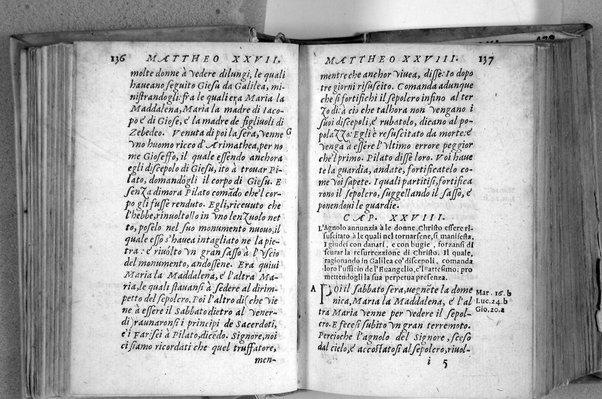 136 MATTHEO XXVII.
molte donne à vedere dilungi, le quali
haueano seguito Giesu da Galilea, mi-
nistrandogli: fra le quali era Maria la
Maddalena, Maria la madre di Iaco-
po è di Giose, è la madre de figliuoli di
Zebedeo. Venuta di poi la sera, venne
vno huomo ricco d'Arimathea, per no
me Gioseffo, il quale essendo anchora
egli discepolo di Giesu, ito à trouar Pi-
lato, domandògli il corpo di Giesu. E
senza dimora Pilato comãdò che'l cor-
po gli fusse renduto. Egli, riceuuto che
l'hebbe, rinuoltollo in vno lenzuolo net
to, poselo nel suo monumento nuouo, il
quale esso s'hauea intagliato ne la pie-
tra: è riuolto vn gran sasso à l'vscio
del monumento, andossene. Era quiui
Maria la Maddalena, è l'altra Ma-
ria, le quali stauansi à sedere al dirim-
petto del sepolcro. Poi l'altro dì (che vie
ne à essere il Sabbato dietro al Vener-
dì raunaronsi i principi de Sacerdoti,
è i Farisei à Pilato, dicẽdo. Signore, noi
ci siamo ricordati che quel truffatore,
men-
G
MATTHEO XXVIII. 137
mentre che anchor viuea, disse: io dopo
tre giorni risuscito. Comanda adunque
che si fortifichi il sepolcro infino al ter
zo dì: à ciò che talhora non vengano i
suoi discepoli, è rubatolo, dicano al po-
polazzo: Egli è resuscitato da morte: è
venga à essere l'vltimo errore peggior
che'l primo. Pilato disse loro. Voi haue
te la guardia, andate, fortificatelo co-
me voi sapete. I quali partitisi, fortifica
rono il sepolcro, suggellando il sasso, è
ponendoui le guardie.
CAP. XXVIII.
L'Agnolo annunzia à le donne Christo essere ri-
suscitato à le quali nel tornarsene, si manifesta,
I giudei con danari, e con bugie, forzansi di
scurar la resurrezzione di Christo. Il quale,
ragionando in Galilea co' discepoli, comanda
loro l'ufficio de l'Euangelio, e'l battesimo: pro
mettendogli la sua perpetua presenza.
A POi il sabbato sera, uegnẽte la dome
nica, Maria la Maddalena, è l'al
tra Maria venne per vedere il sepol-
cro. E fecesi subito vn gran terremoto.
Percioche l'agnolo del Signore, sceso
dal cielo, è accostatosi al sepolcro, riuol-
i 5
Mar. 16. b
Luc. 24. b
Gio. 20. a